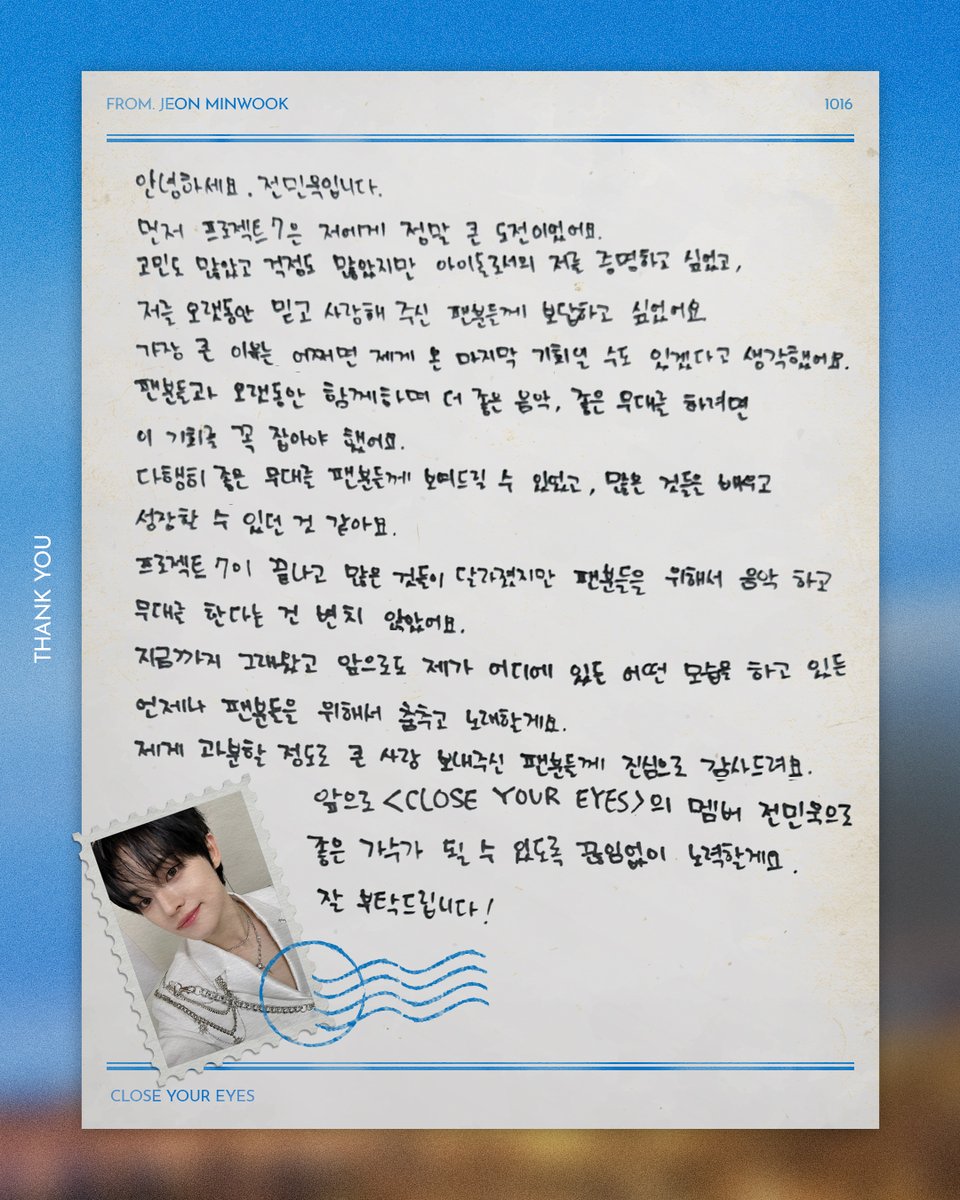 FROM. JEON MINWOOK
1016
안녕하세요. 전민욱입니다.
먼저 프로젝트7은 저에게 정말 큰 도전이었어요.
고민도 많았고 걱정도 많았지만 아이돌로서의 저를 증명하고 싶었고,
저를 오랫동안 믿고 사랑해 주신 팬분들께 보답하고 싶었어요
가장 큰 이유는 어쩌면 제게 온 마지막 기회일 수도 있겠다고 생각했어요.
팬분들과 오랫동안 함께하며 더 좋은 음악, 좋은 무대를 하려면
이 기회를 꼭 잡아야 했어요.
다행히 좋은 무대를 팬분들께 보여드릴 수 있었고, 많은 것들을 배우고
성장할 수 있던 것 같아요.
프로젝트7이 끝나고 많은 것들이 달라졌지만 팬분들을 위해서 음악 하고
무대를 한다는 건 변치 않았어요.
지금까지 그래왔고 앞으로도 제가 어디에 있든 어떤 모습을 하고 있든
언제나 팬분들을 위해서 춤추고 노래할게요.
제게 과분할 정도로 큰 사랑 보내주신 팬분들께 진심으로 감사드려요.
앞으로 <CLOSE YOUR EYES>의 멤버 전민욱으로
좋은 가수가 될 수 있도록 끊임없이 노력할게요.
잘 부탁드립니다!
THANK YOU
CLOSE YOUR EYES